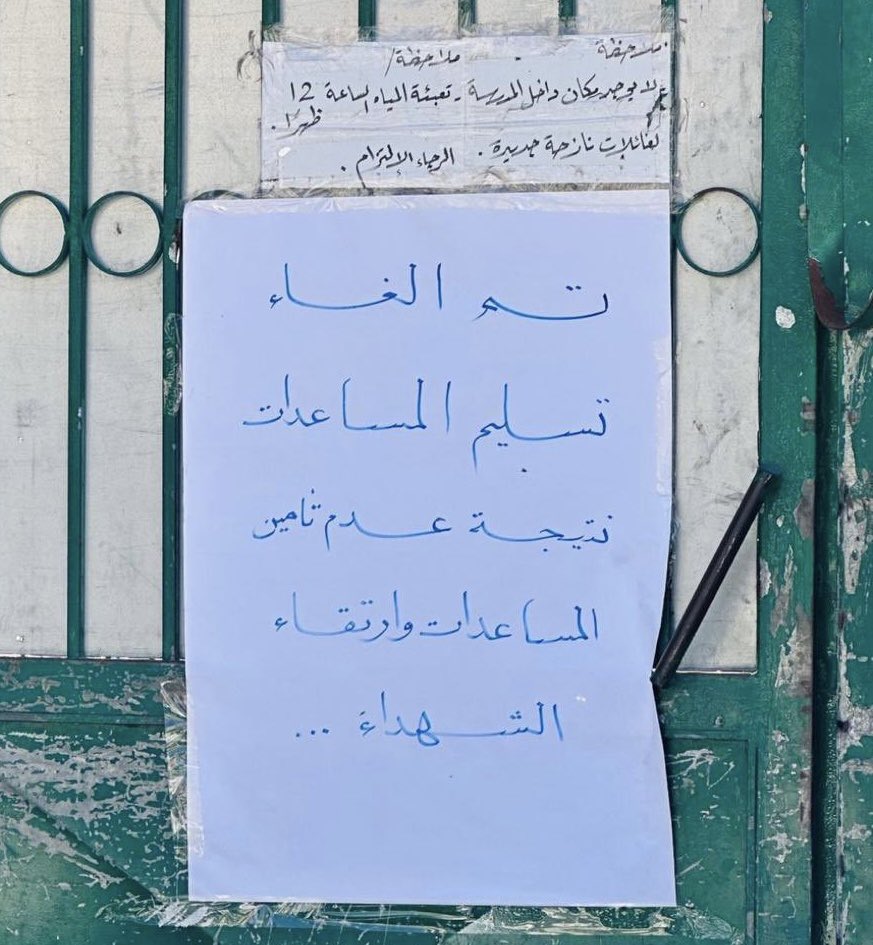 ملاحظة
لا يوجد مكان داخل المدرسة
لعائلات نازحة جديدة.
ملاحظة/
- تعبئة المياه الساعة 12
ظهرا.
الرجاء الإلتزام.
تم الغاء
تسليم المساعدات
نتيجة عدم تامين
المساعدات وارتقاء
الشهداء ...